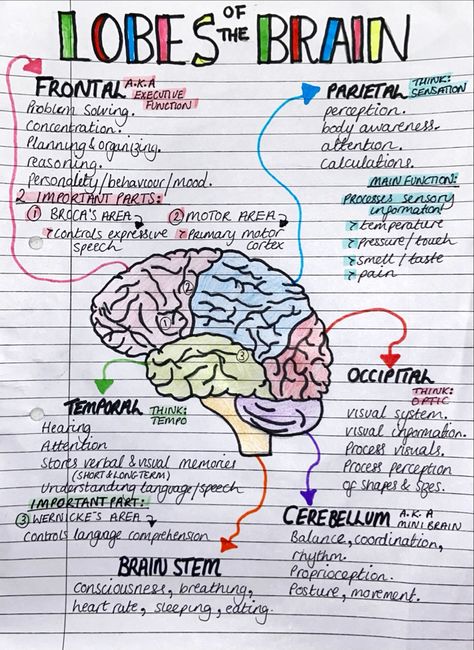 LOBES OF THE BRAIN
FRONTAL A.K.A EXECUTIVE FUNCTION
Problem Solving.
Concentration.
Planning & organizing.
reasoning.
Personality/behaviour/mood.
2 IMPORTANT PARTS:
① BROCA'S AREA
↳ Controls expressive
speech
② MOTOR AREA
↳ Primary motor
cortex
PARIETAL THINK: SENSATION
perception.
body awareness.
attention.
calculations.
MAIN FUNCTION:
Processes sensory
information!
↳ temperature
↳ pressure/touch
↳ smell/taste
↳ pain
②
①
③
OCCIPITAL
THINK:
OPTIC
visual system.
visual information.
Process visuals.
Process perception
of shapes & sizes.
TEMPORAL THINK: TEMPO
Hearing
Attention
Stores verbal & visual memories
(SHORT & LONG-TERM)
Understanding language/speech
IMPORTANT PART:
③ WERNICKE'S AREA
Controls langage comprehension
CEREBELLUM A.K.A MINI BRAIN
Balance, coordination,
rhythm.
Proprioception.
Posture, movement.
BRAIN STEM
Consciousness, breathing,
heart rate, sleeping, eating.